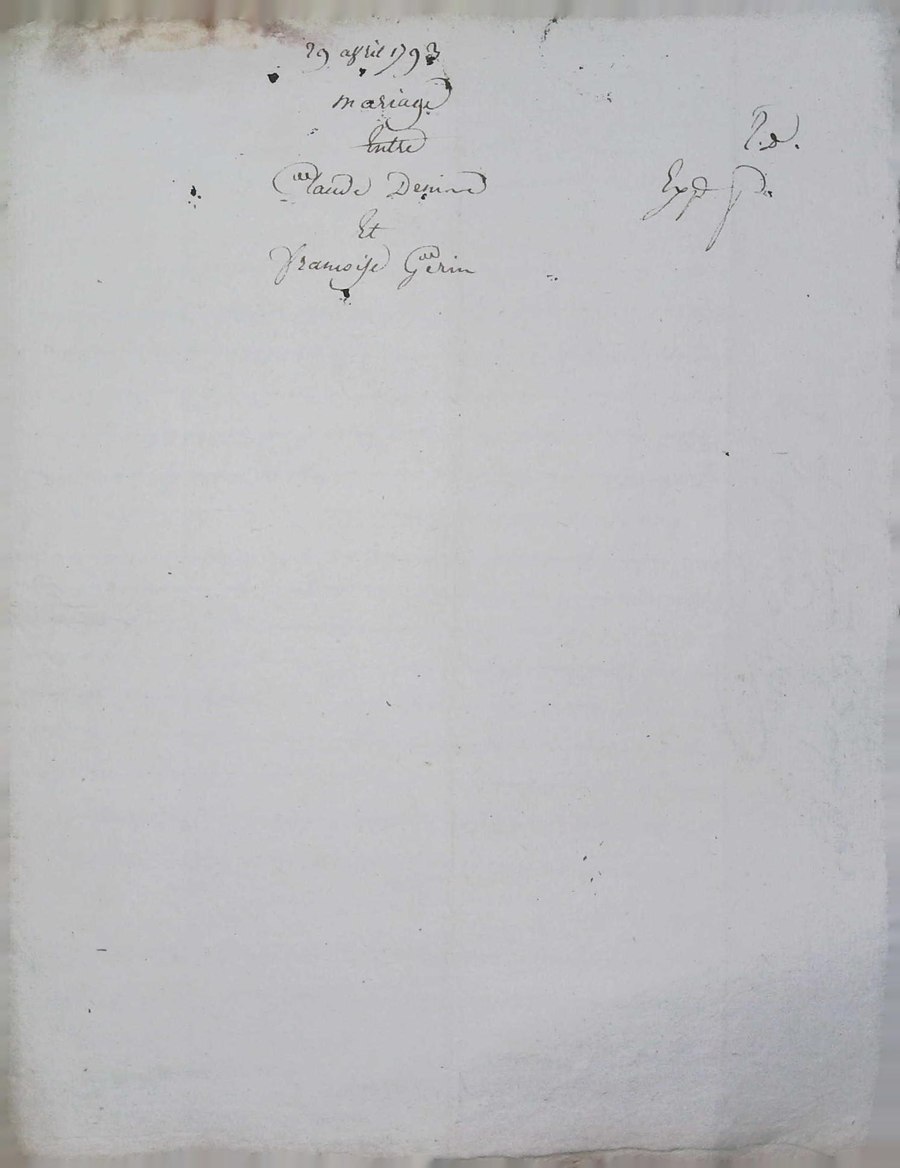 29 avril 1793
mariage
Entre
Claude Denine
Et
Francoise Gerin
Exp